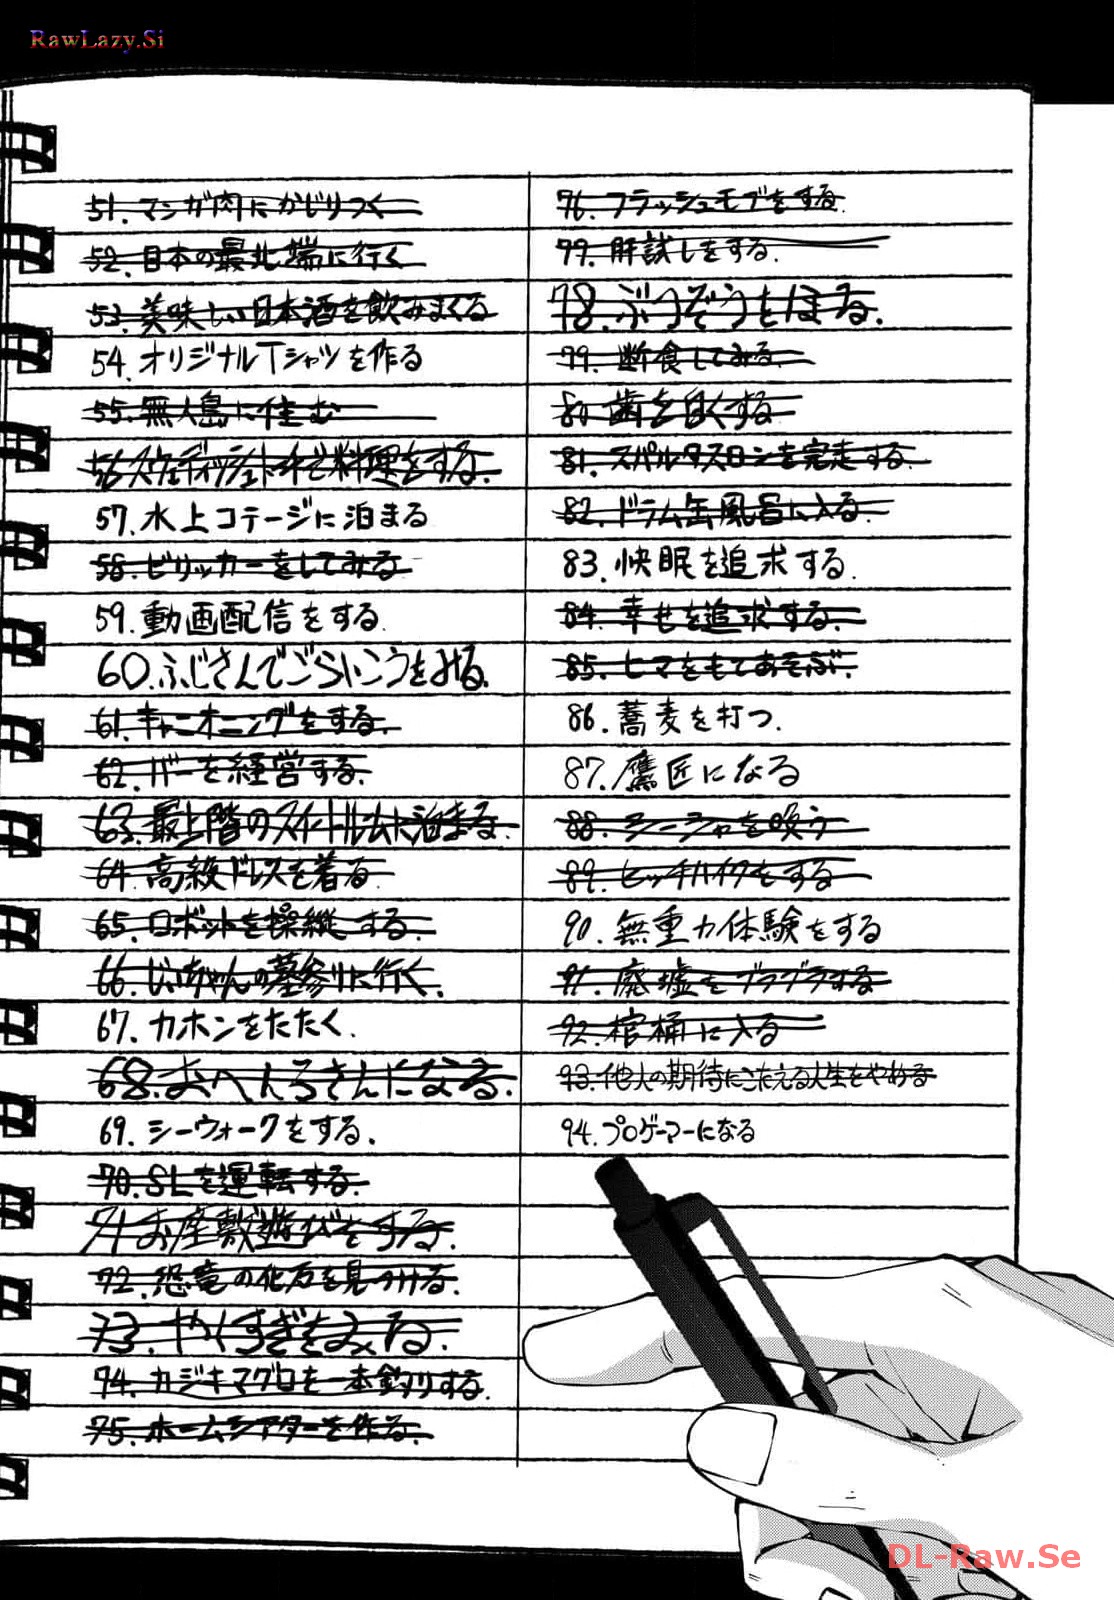 RawLazy.Si
51. マンガ肉にかじりつく
52. 日本の最北端に行く
53. 美味しい日本酒を飲みまくる
54. オリジナルTシャツを作る
55. 無人島に住む
56. スウェディッシュトーチで料理をする.
57. 水上コテージに泊まる
58. ビリッカーをしてみる
59. 動画配信をする.
60. ふじさんでごらいこうをみる.
61. キャニオニングをする.
62. バーを経営する.
63. 最上階のスイートルームに泊まる.
64. 高級ドレスを着る.
65. ロボットを操縦する.
66. じいちゃんの墓参りに行く.
67. カホンをたたく.
68. おへんろさんになる.
69. シーウォークをする.
70. SLを運転する.
71 お座敷遊びをする.
72. 恐竜の化石を見つける.
73. やくすぎをみる.
74. カジキマグロを一本釣りする.
75. ホームシアターを作る.
76. フラッシュモブをする.
77. 肝試しをする.
78. ぶつぞうをほる.
79. 断食してみる.
80. 歯を白くする
81. スパルタスロンを完走する.
82. ドラム缶風呂に入る.
83. 快眠を追求する.
84. 幸せを追求する.
85. ヒマをもてあそぶ.
86. 蕎麦を打つ.
87. 鷹匠になる
88. シーシャを吸う
89. ヒッチハイクをする
90. 無重力体験をする
91. 廃墟をブラブラする
92. 棺桶に入る
93. 他人の期待にこたえる人生をやめる
94. プロゲーマーになる
DL-Raw.Se